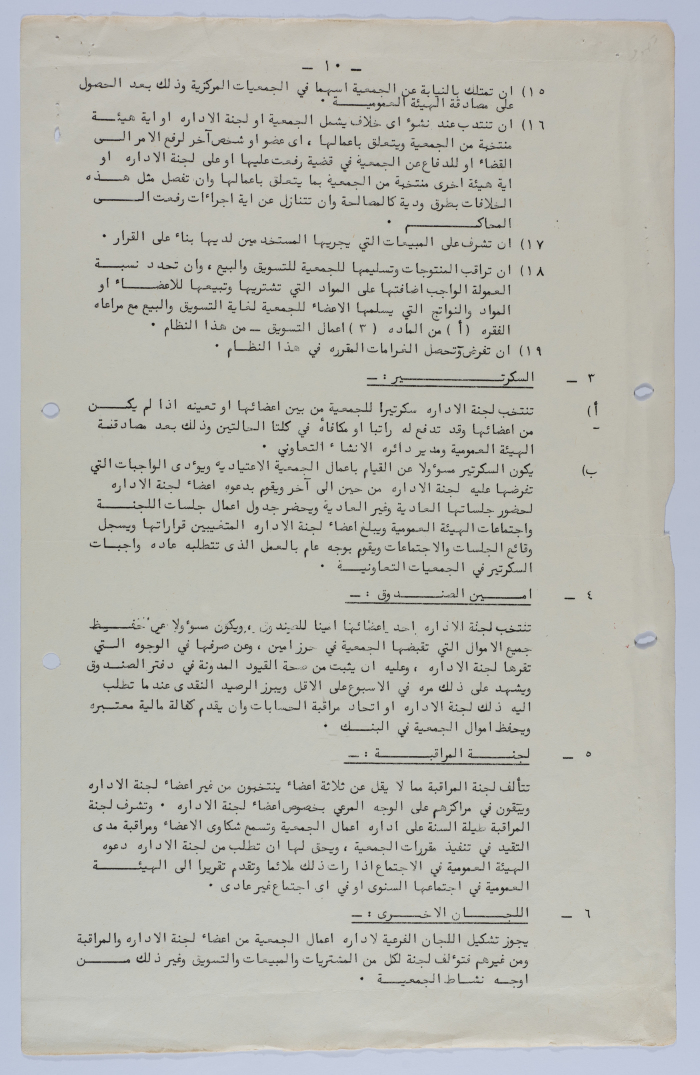 – ١٠ –
١٥) ان تمتلك بالنيابة عن الجمعية اسهما في الجمعيات المركزية وذلك بعد الحصول
على مصادقة الهيئة العمومية ٠
١٦) ان تنتدب عند نشوء اى خلاف يشمل الجمعية او لجنة الاداره او اية هيئة
منتخبة من الجمعية ويتعلق باعمالها ، اى عضو او شخص آخر لرفع الامر الى
القضاء او للدفاع عن الجمعية في قضية رفعت عليها او على لجنة الاداره او
اية هيئة اخرى منتخبة من الجمعية بما يتعلق باعمالها وان تفصل مثل هذه
الخلافات بطرق ودية كالمصالحة وان تتنازل عن اية اجراءات رفعت الى
المحاكم ٠
١٧) ان تشرف على المبيعات التي يجريها المستخدمين لديها بناء على القرار ٠
١٨) ان تراقب المنتوجات وتسليمها للجمعية للتسويق والبيع ، وان تحدد نسبة
العمولة الواجب اضافتها على المواد التي تشتريها وتبيعها للاعضاء او
المواد والنواتج التي يسلمها الاعضاء للجمعية لغاية التسويق والبيع مع مراعاه
الفقره (أ) من الماده (٣) اعمال التسويق – من هذا النظام ٠
١٩) ان تفرض وتحصل الغرامات المقرره في هذا النظام ٠
٣ – السكرتير : –
أ) تنتخب لجنة الاداره سكرتيرا للجمعية من بين اعضائها او تعينه اذا لم يكن
من اعضائها وقد تدفع له راتبا او مكافأة في كلتا الحالتين وذلك بعد مصادقة
الهيئة العمومية ومدير دائره الانشاء التعاوني ٠
ب) يكون السكرتير مسؤولا عن القيام باعمال الجمعية الاعتيادية ويؤدى الواجبات التي
تفرضها عليه لجنة الاداره من حين الى آخر ويقوم بدعوه اعضاء لجنة الاداره
لحضور جلساتها العادية وغير العادية ويحضر جدول اعمال جلسات اللجنة
واجتماعات الهيئة العمومية ويبلغ اعضاء لجنة الاداره المتغيبين قراراتها ويسجل
وقائع الجلسات والاجتماعات ويقوم بوجه عام بالعمل الذى تتطلبه عاده واجبات
السكرتير في الجمعيات التعاونية ٠
٤ – امين الصندوق : –
تنتخب لجنة الاداره احد اعضائها امينا للصندوق ، ويكون مسؤولا عن حفظ
جميع الاموال التي تقبضها الجمعية في حرز امين ، وعن صرفها في الوجوه التي
تقرها لجنة الاداره ، وعليه ان يثبت من صحة القيود المدونة في دفتر الصندوق
ويشهد على ذلك مره في الاسبوع على الاقل ويبرز الرصيد النقدى عندما تطلب
اليه ذلك لجنة الاداره او اتحاد مراقبة الحسابات وان يقدم كفالة مالية معتبره
ويحفظ اموال الجمعية في البنك ٠
٥ – لجنة المراقبة : –
تتألف لجنة المراقبة مما لا يقل عن ثلاثة اعضاء ينتخبون من غير اعضاء لجنة الاداره
ويبقون في مراكزهم على الوجه المرعي بخصوص اعضاء لجنة الاداره ٠ وتشرف لجنة
المراقبة طيلة السنة على اداره اعمال الجمعية وتسمع شكاوى الاعضاء ومراقبة مدى
التقيد في تنفيذ مقررات الجمعية ، ويحق لها ان تطلب من لجنة الاداره دعوه
الهيئة العمومية في الاجتماع اذا رات ذلك ملائما وتقدم تقريرا الى الهيئة
العمومية في اجتماعها السنوى او في اى اجتماع غير عادى ٠
٦ – اللجان الاخرى : –
يجوز تشكيل اللجان الفرعية لاداره اعمال الجمعية من اعضاء لجنة الاداره والمراقبة
ومن غيرهم فتؤلف لجنة لكل من المشتريات والمبيعات والتسويق وغير ذلك من
اوجه نشاط الجمعية ٠